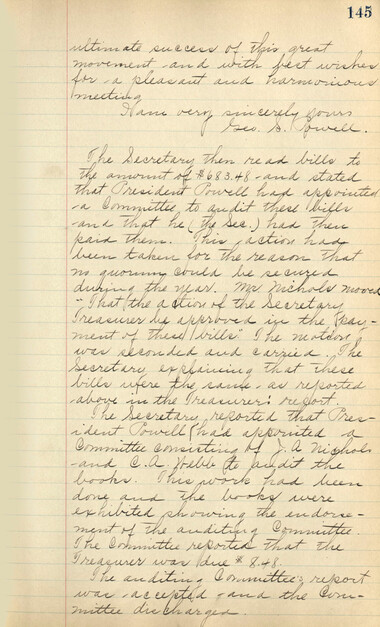 145
ultimate success of this great
movement and with best wishes
for a pleasant and harmonious
meeting
I am very sincerely yours
Geo. S. Powell.
The Secretary then read bills to
the amount of $683.48 and stated
that President Powell had appointed
a Committee to audit these bills
and that he (the Sec.) had then
paid them. This action had
been taken for the reason that
no quorum could be secured
during the year. Mr Nichols moved
"That the action of the Secretary
Treasurer be approved in the pay-
ment of these bills". The motion
was seconded and carried. The
Secretary explaining that these
bills were the same as reported
above in the Treasurer's report.
The Secretary reported that Pres-
ident Powell had appointed a
Committee consisting of J. A. Nichols
and C. A. Webb to audit the
books. This work had been
done and the books were
exhibited showing the endorse-
ment of the auditing Committee.
The Committee reported that the
Treasurer was due $8.48
The auditing Committee's report
was accepted and the Com-
mittee discharged.